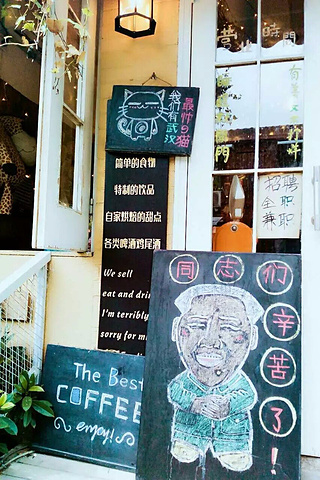 营业时间
我们有武汉
最忙的猫
简单的食馆
特制的饮品
自家烘焙的甜点
各类啤酒鸡尾酒
We sell
eat and drin
I'm terribly
sorry for m
招聘
全职
兼职
The Best
COFFEE
enjoy!
同志们辛苦了!